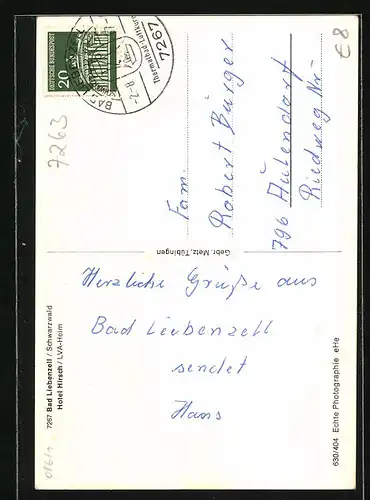 Herzliche Grüße aus
Bad Liebenzell
sendet
Hans
7267 Bad Liebenzell / Schwarzwald
Hotel Hirsch / LVA-Heim
Gebr. Metz, Tübingen
630/404 Echte Photographie eHe
Fam.
Robert Bürger
796 Aulendorf
Riedweg Nr.
DEUTSCHE BUNDESPOST
20
7267
BAD
7263
€8